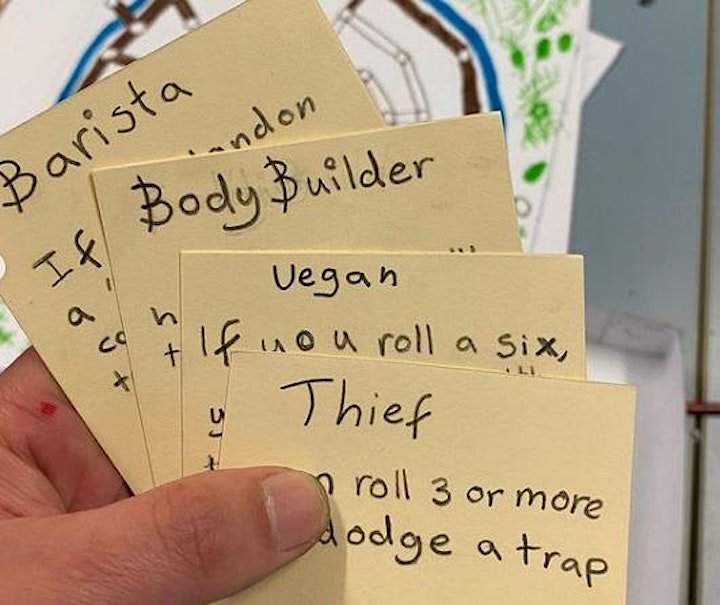 Barista
If
a
BodyBuilder
Vegan
If you roll a six,
Thief
roll 3 or more
dodge a trap